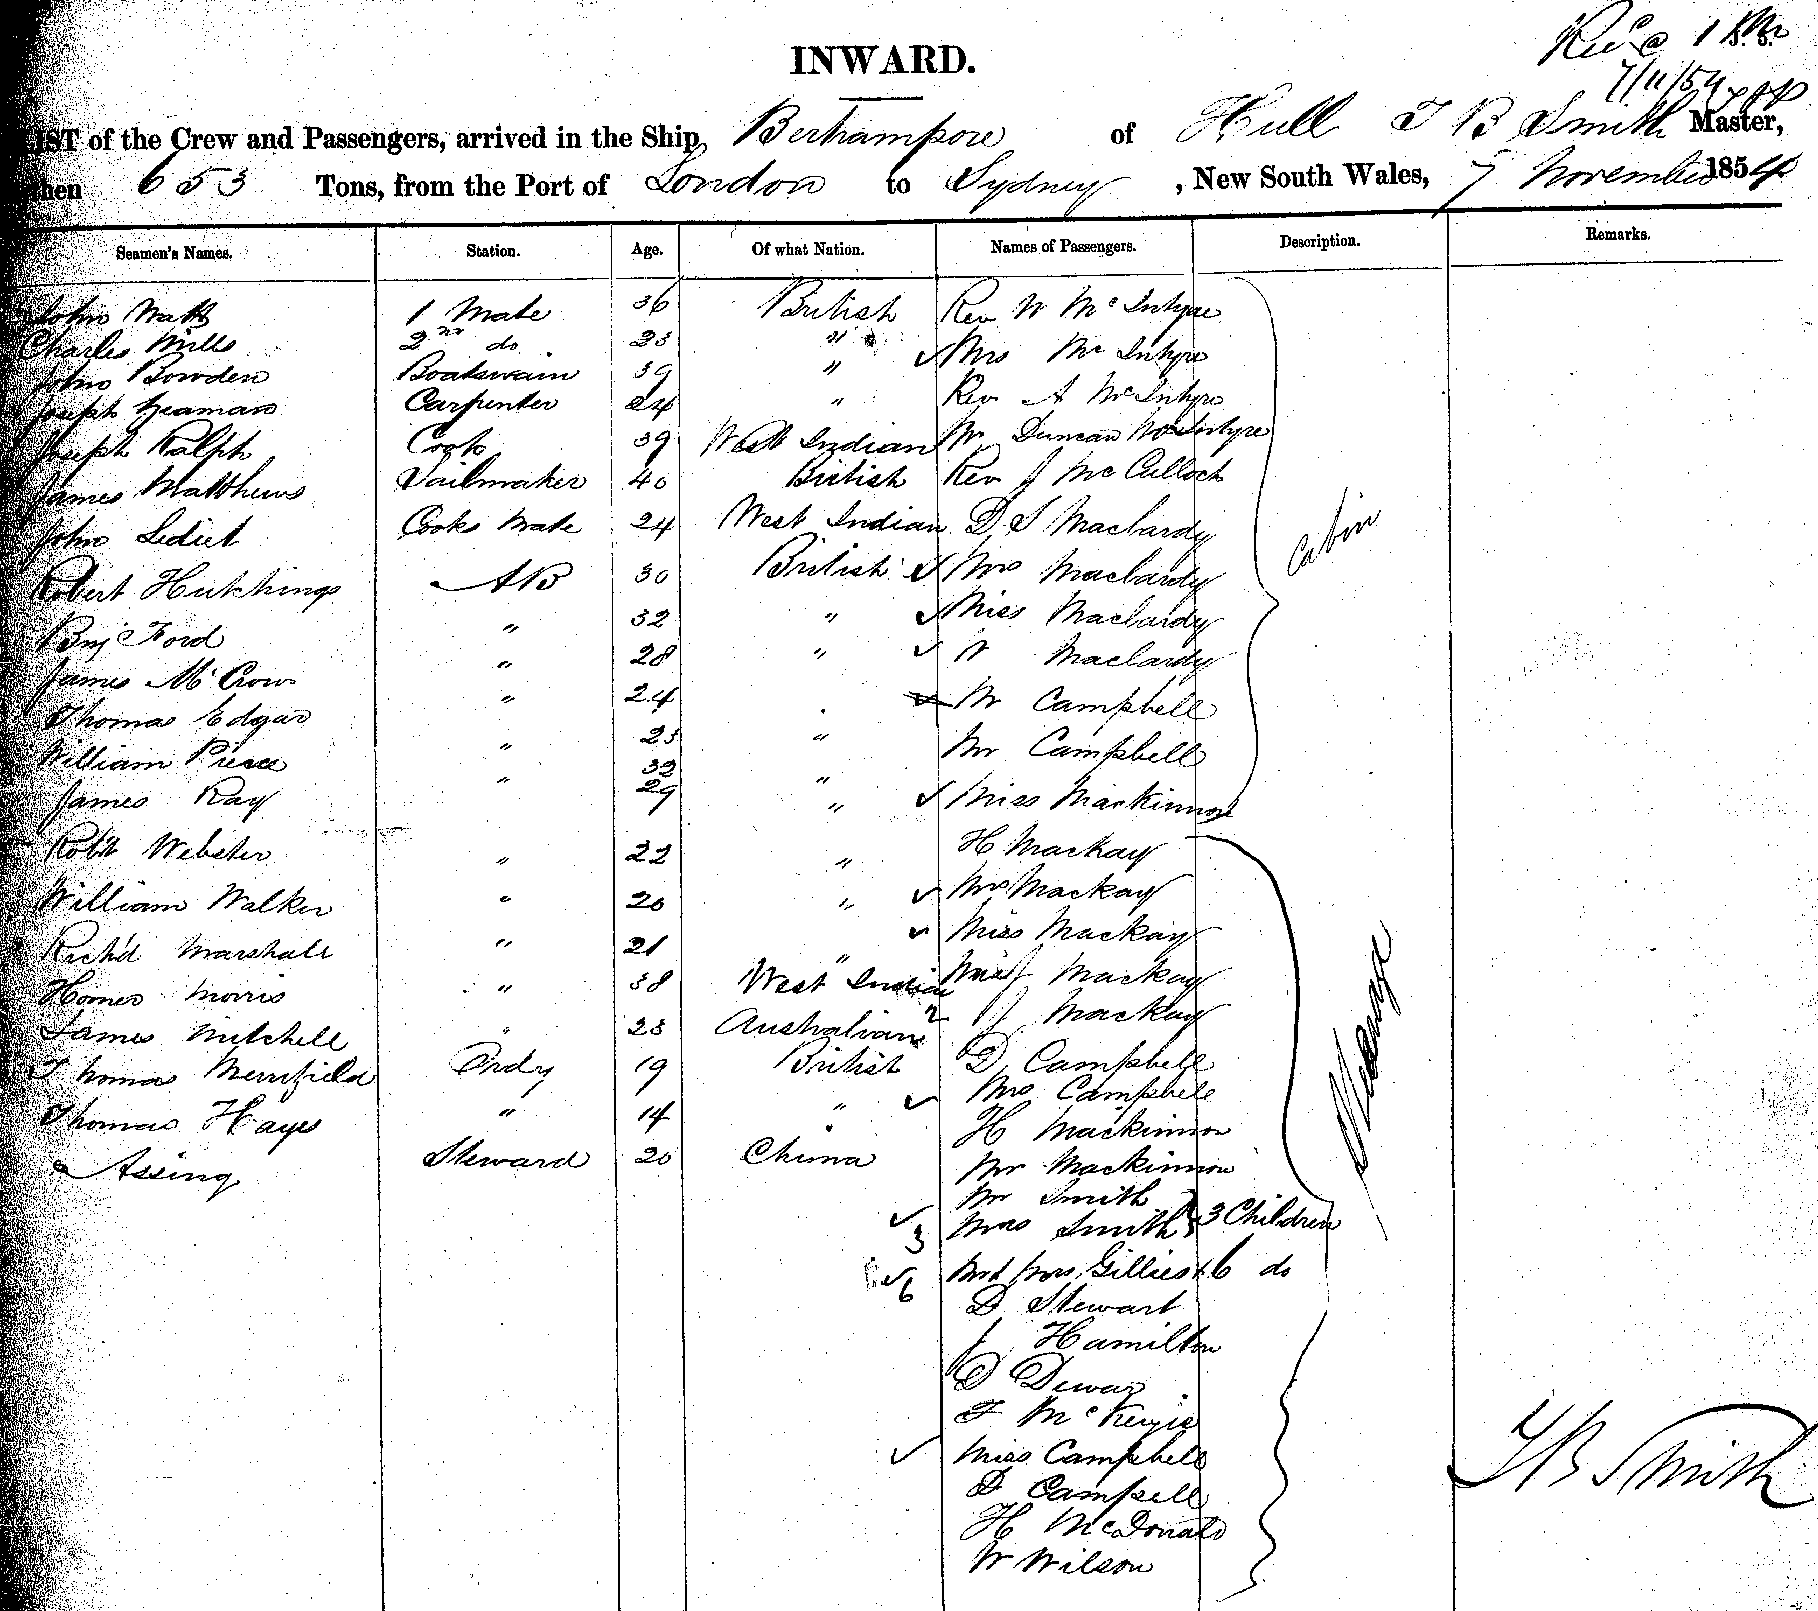 INWARD.
7/11/54
LIST of the Crew and Passengers, arrived in the Ship, Berhampore of Hull T B Smith Master,
Burthen 653 Tons, from the Port of London to Sydney, New South Wales, 7 November 1854
Seamen's Names. Station. Age. Of what Nation. Names of Passengers. Description. Remarks.
John Watt 1 Mate 36 British Rev W McIntyre
Charles Mills 2nd do 25 " Mrs McIntyre
John Bowden Boatswain 39 " Rev A McIntyre
Joseph Yeaman Carpenter 24 " Mr Duncan McIntyre
Joseph Ralph Cook 39 West Indian Rev J McCulloch
James Matthews Sailmaker 40 British D S Maclardy
John Lediet Cooks Mate 24 West Indian Mrs Maclardy
Cabin
Robert Hutchings AB 30 British Miss Maclardy
Benj Ford " 32 " W Maclardy
James McCrow " 28 " Mr Campbell
Thomas Edgar " 24 Mr Campbell
William Pierce " 25 " Miss Mackinnon
James Ray " 32 "
29 "
H Mackay
Robt Webster " 22 " Mrs Mackay
William Walker " 20 " Miss Mackay
Richd Marshall " 21 " Miss J Mackay
Homer Morris " 38 West Indian J Mackay
James Mitchell " 23 Australian? D Campbell
Thomas Merrifield Ordy 19 British Mrs Campbell
Thomas Hayes " 14 " H Mackinnon
Assing Steward 20 China Mr Mackinnon
Mr Smith
3 Mrs Smith & 3 Children
6 Mr & Mrs Gillies & 6 do
D Stewart
J Hamilton
D Dewar
T McKenzie
Miss Campbell
D Campbell
H McDonald
W Wilson
T B Smith